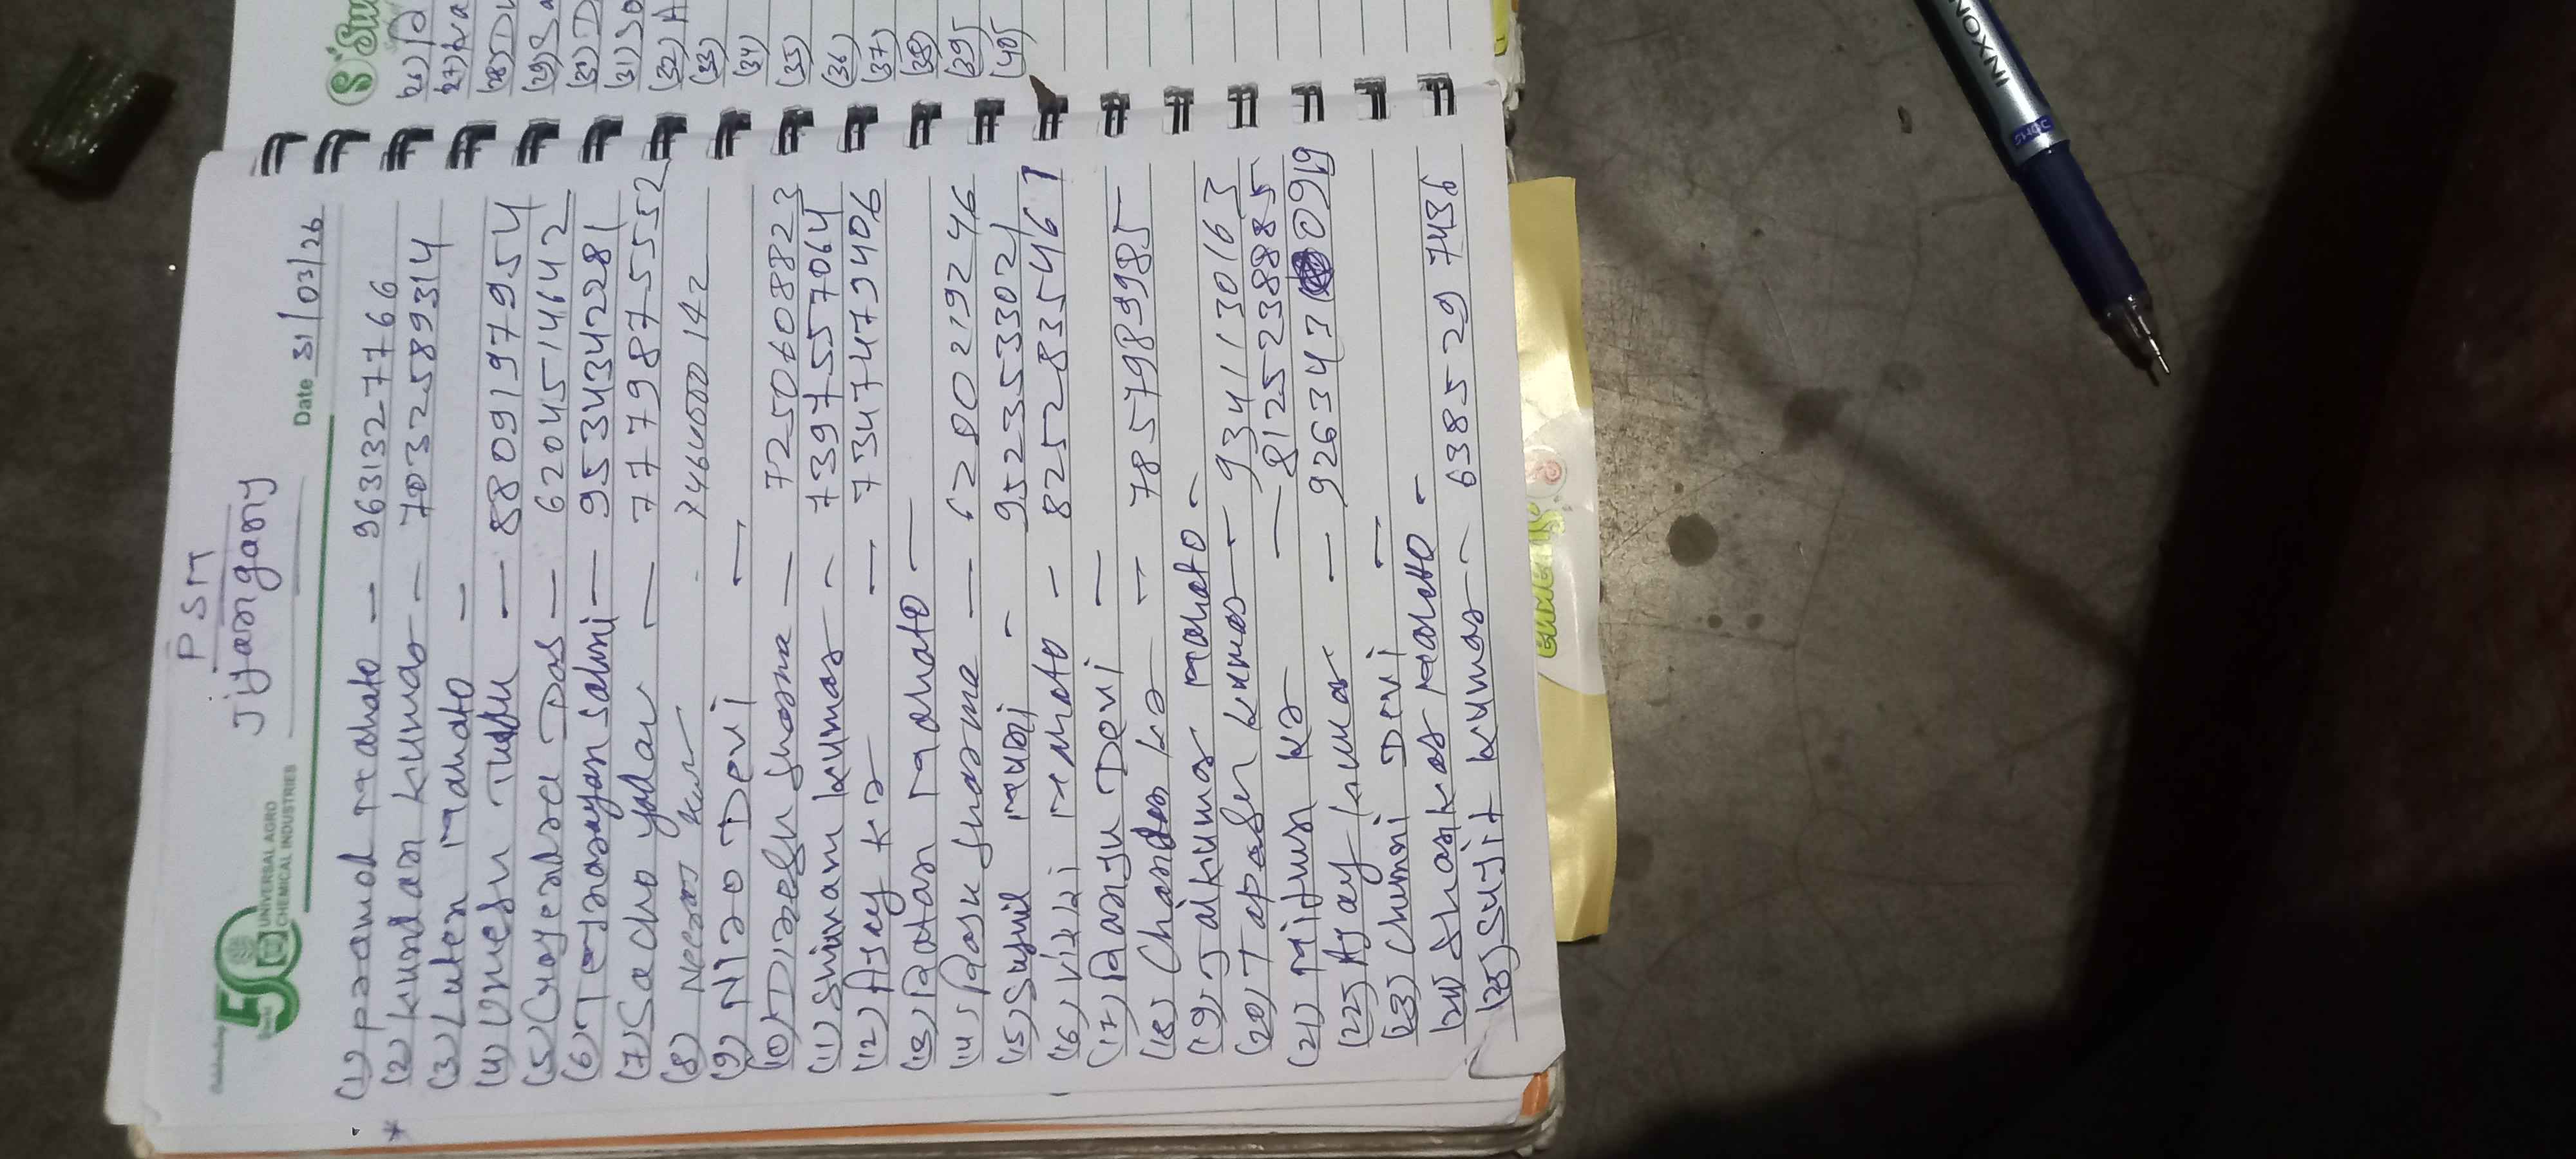 PSM
Jiyanganj
Celebrating
50
UNIVERSAL AGRO
CHEMICAL INDUSTRIES
Date 31/03/26
(1) pramod mahato — 9631327766
(2) kundan kumar — 7032589314
(3) Luten Mahato —
(4) Umesh Tudu — 8809197954
(5) Gajendra Das — 6204514642
(6) Tejnarayan Sahni — 9534342281
(7) Sacho yadav — 7779875552
(8) Neeraj Kum 7464000142
(9) Niro Devi —
(10) Diresh sharma — 7250608823
(11) Shivam kumar — 7397557064
(12) Ajay kr — 7347479406
(13) Ratan Mahato —
(14) Raju sharma — 6280219246
(15) Sunil murari - 9523533021
(16) Vikki mahato - 8252835467
(17) Ranju Devi —
(18) Chandan kr — 7857989985
(19) Jaikumar mahato -
(20) Tapesh kumar — 9341130163
(21) Mithun kr — 8125238885
(22) Ajay kumar — 926343 0919
(23) Chunni Devi —
(24) Shankar Mahatto -
(25) Sujit kumar — 6385297436
(26)
(27)
(28)
(29)
(30)
(31)
(32)
(33)
(34)
(35)
(36)
(37)
(38)
(39)
(40)
INXON